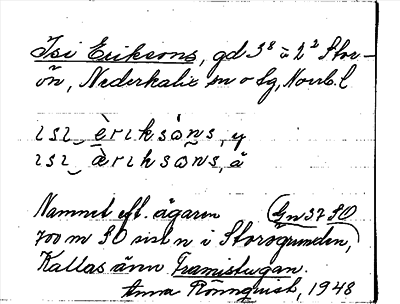 Isi Eriksons, gd 3⁸ å 2² Stor-
ön, Nederkalix sn o lg, Norrb. l
ɩsɩ èrɩksòns, y
ɩsɩ ærɩksòns, ä
Namnet eft. ägaren Gn 37 SO
700 m SO sist n i Storögrunden,
Kallas även Framistugan.
Anna Rönnquist, 1948